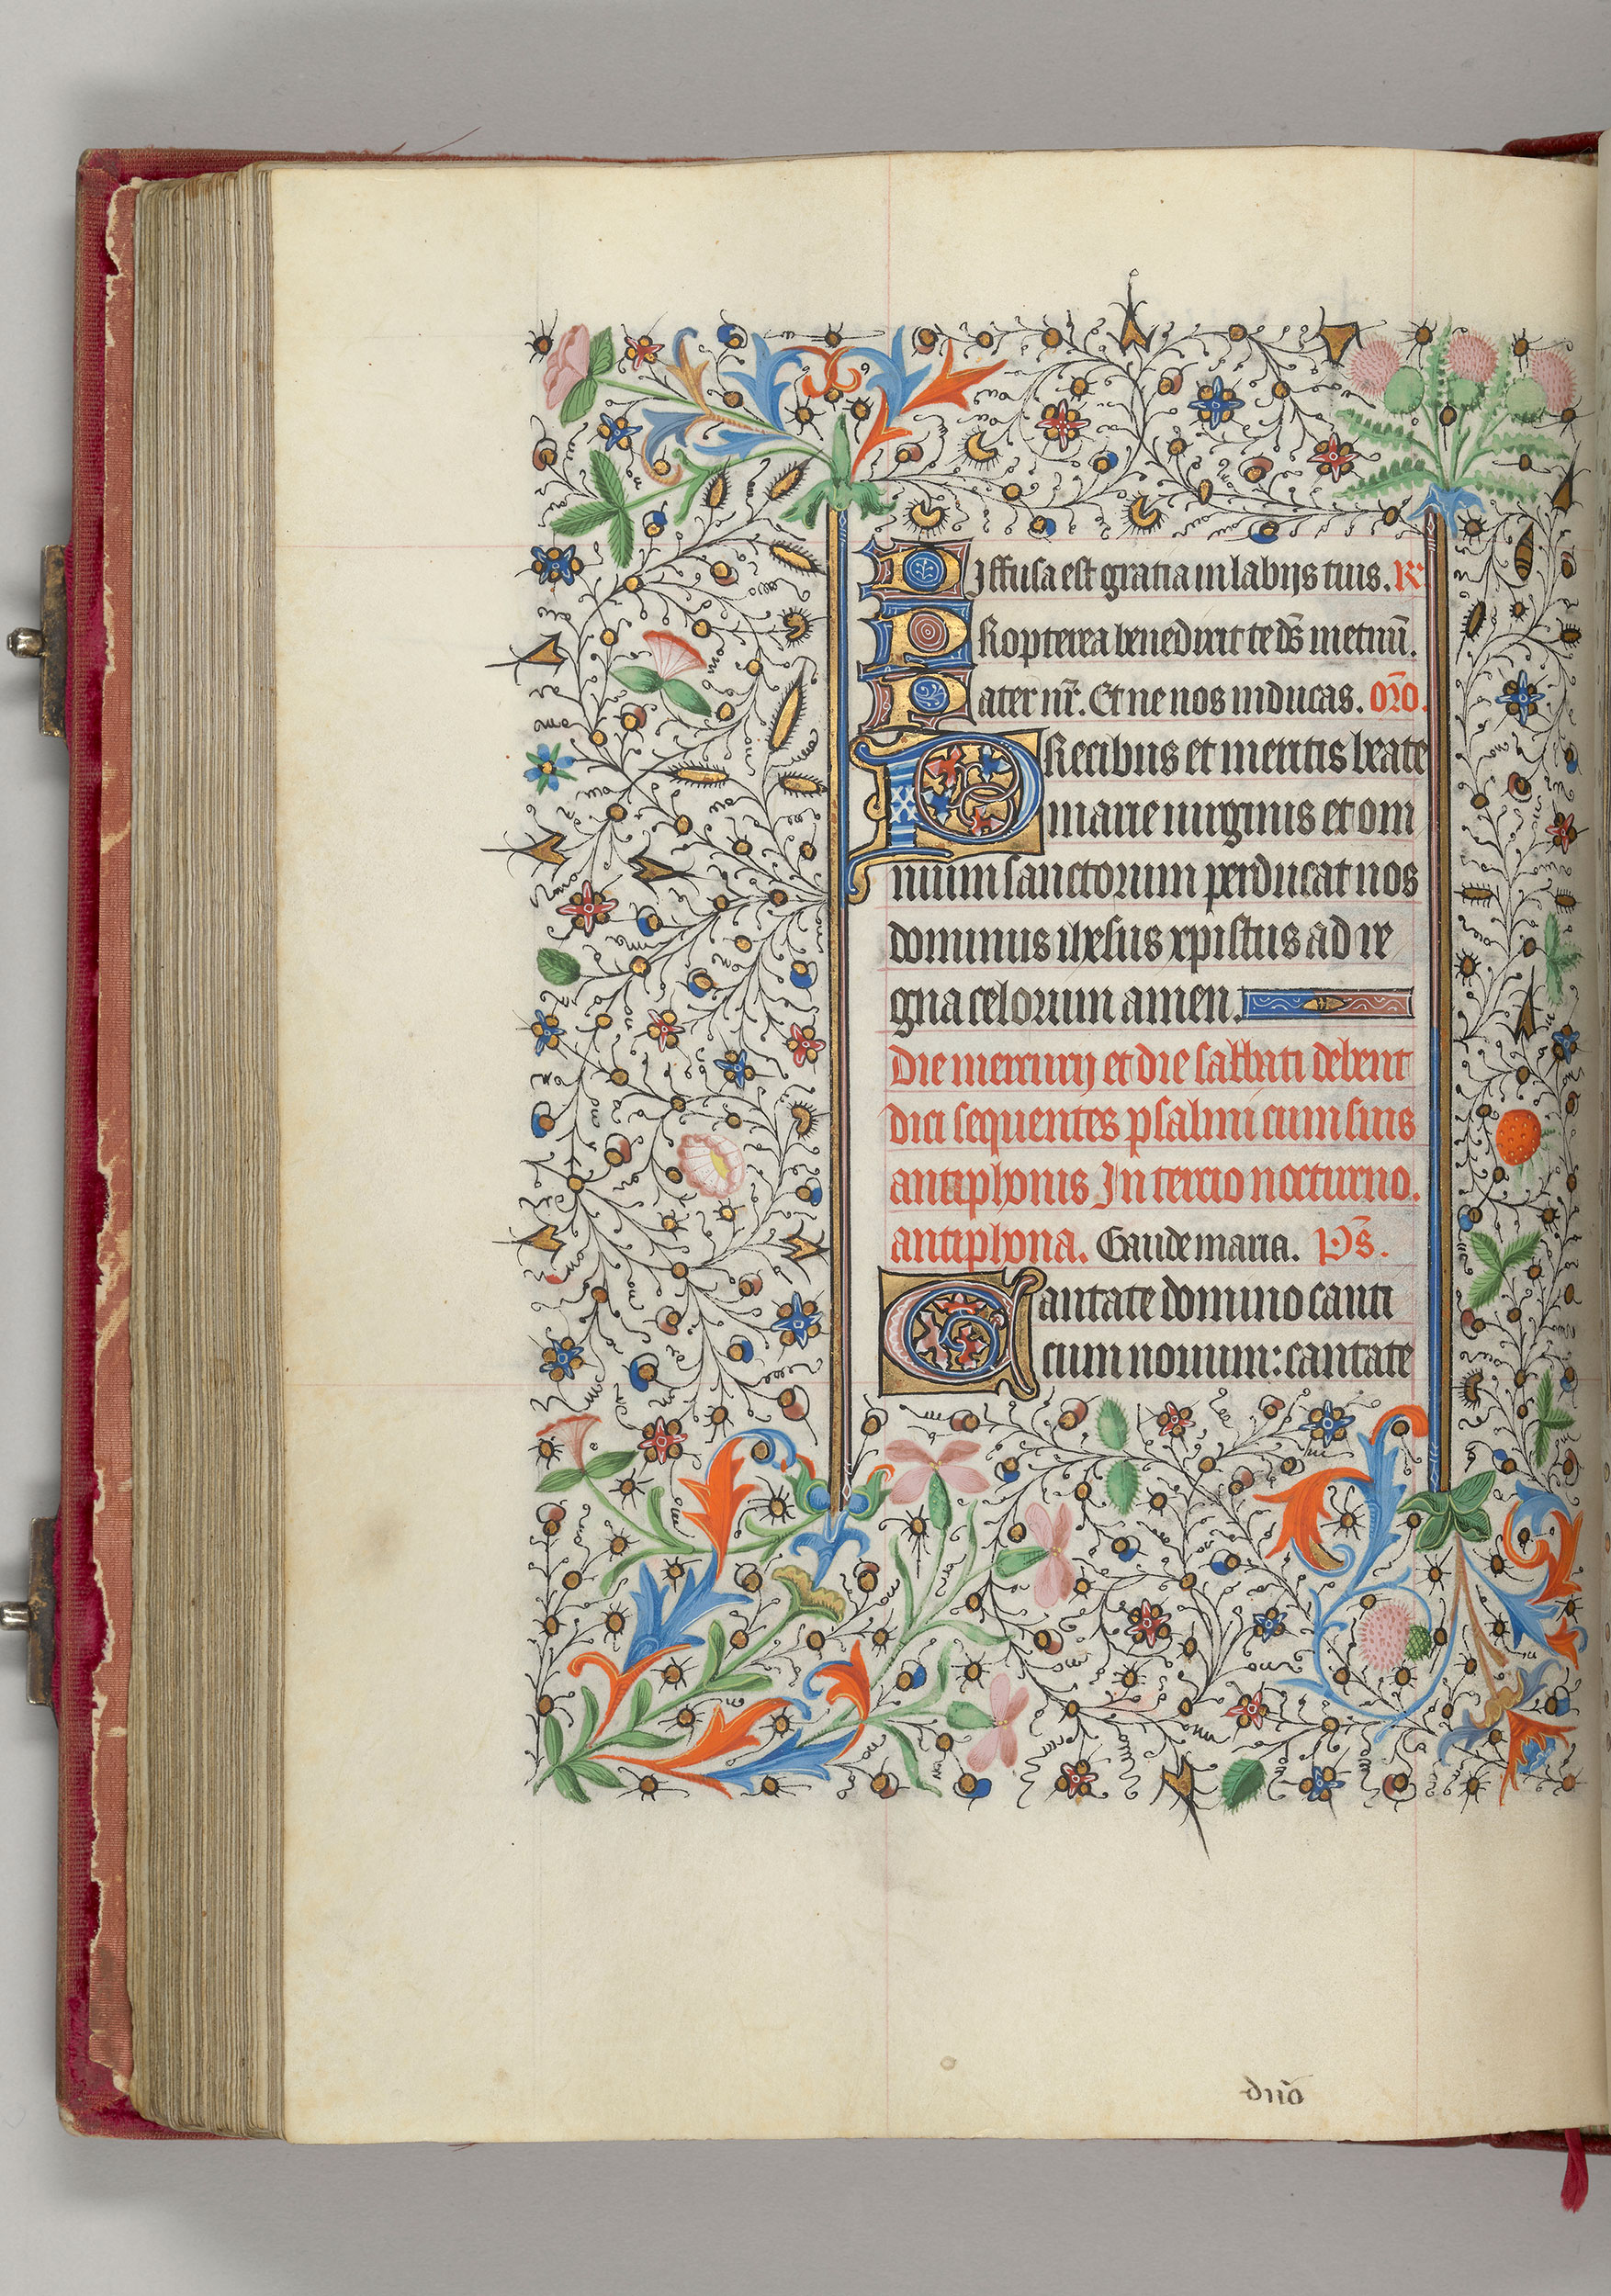 Diffusa est gratia in labijs tuis. R̃
Propterea benedixit te dẽs in eternũ.
Pater nr̃. Et ne nos inducas. Orõ.
Precibus et meritis beate
marie virginis et om
nium sanctorum perducat nos
dominus ihesus xpistus ad re
gna celorum amen.
Die mercurij et die sabbati debent
dici sequentes psalmi cum suis
antiphonis In tercio nocturno.
antiphona. Gaude maria. Ps̃.
Cantate domino canti
cum nouum: cantate
dño